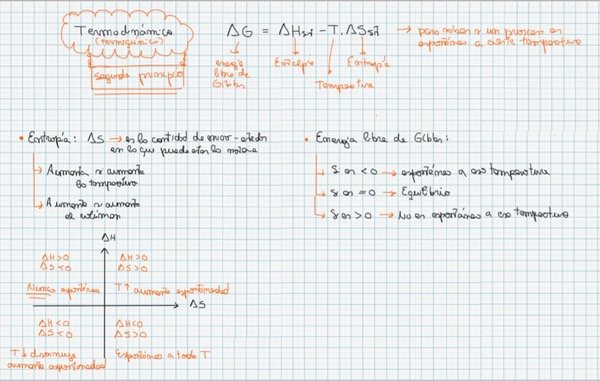 Termodinámica
(termoquímica)
segundo principio
ΔG = ΔHsist - T.ΔSsist → para saber si un proceso es
espontáneo a cierta temperatura
energía
libre de
Gibbs
Entalpía
Temperatura
Entropía
• Entropía: ΔS → es la cantidad de micro-estados
en los que puede estar la materia
→ Aumenta si aumenta
la temperatura
→ Aumenta si aumenta
el volumen
• Energía libre de Gibbs:
→ Si es <0 → espontáneo a esa temperatura
→ Si es =0 → Equilibrio
→ Si es >0 → No es espontáneo a esa temperatura
ΔH
ΔH>0
ΔS<0
Nunca espontánea
ΔH>0
ΔS>0
T↑ aumenta espontaneidad
ΔS
ΔH<0
ΔS<0
T↓ disminuye
aumenta espontaneidad
ΔH<0
ΔS>0
Espontáneo a toda T